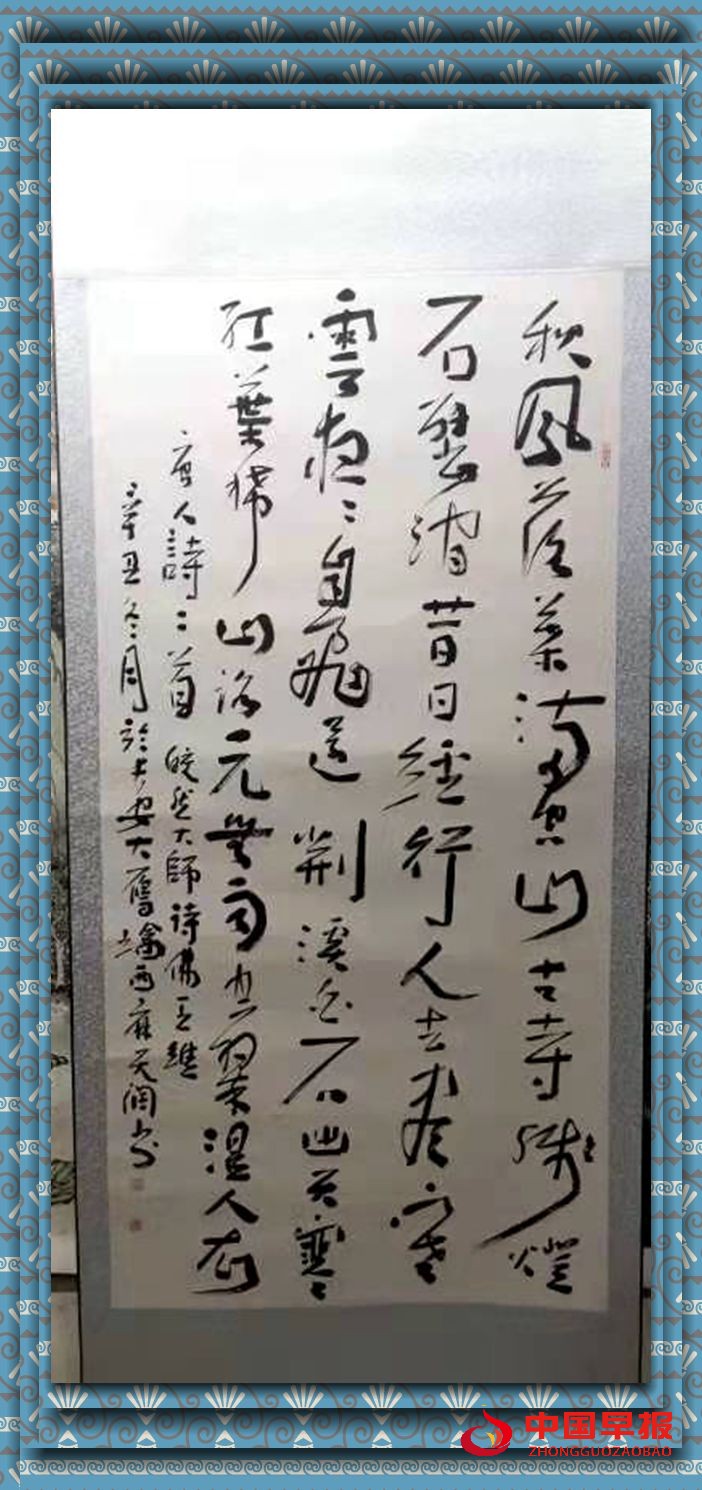 秋風落葉滿空山古寺殘燈
石壁間昔日經行人去盡寒
雲夜〻自飛還荊溪白石出天寒
紅葉稀山路元無雨空翠濕人衣
唐人詩二首 皎然大師 詩佛王維
辛丑冬月於長安大雁塔西
中国早报
ZHONGGUOZAOBAO